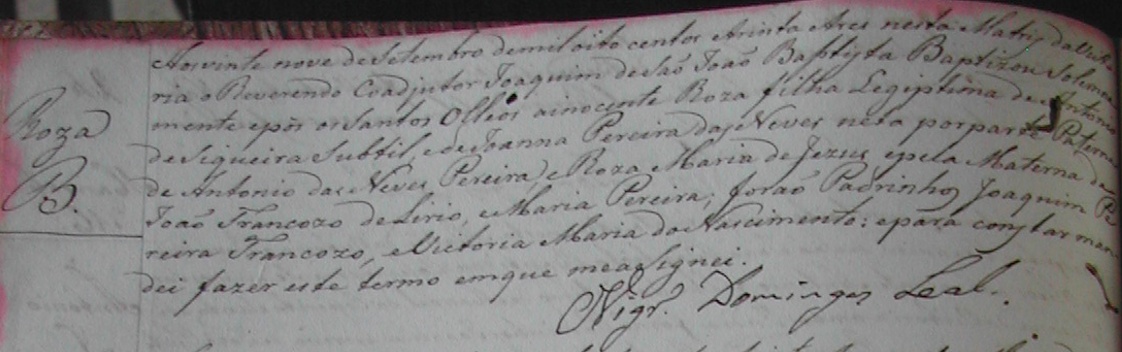 Roza
B.
Aos vinte nove de Setembro de mil oito centos trinta e tres nesta Matriz da Victo
ria o Reverendo Coadjutor Joaquim de São João Baptista Baptizou Solemne
mente e pôs os Santos Olleos a inocente Roza filha Legiptima de Antonio
de Siqueira Subtil, e de Joanna Pereira das Neves neta por parte Paterna
de Antonio das Neves Pereira, e Roza Maria de Jezus, e pela Materna de
João Francozo de Lirio, e Maria Pereira; forão Padrinhos Joaquim Pe
reira Francozo, e Victoria Maria do Nascimento: e para constar man
dei fazer este termo em que me assignei.
Vigr.º Domingos Leal.